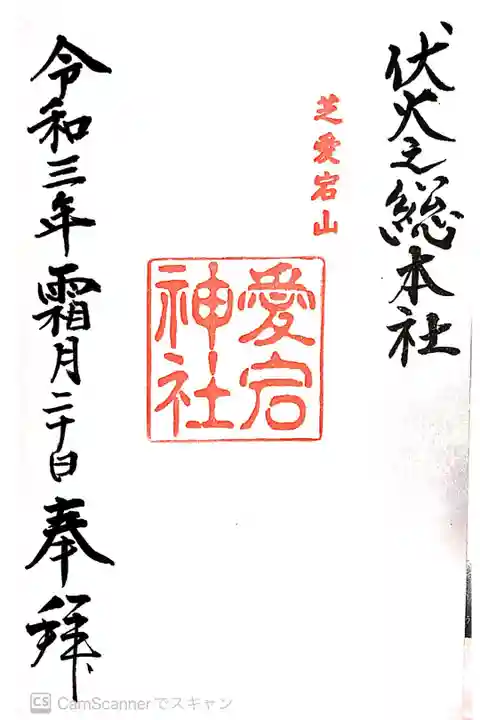 伏火之総本社
芝愛宕山
愛宕
神社
令和三年霜月二十日奉拜
CS CamScannerでスキャン